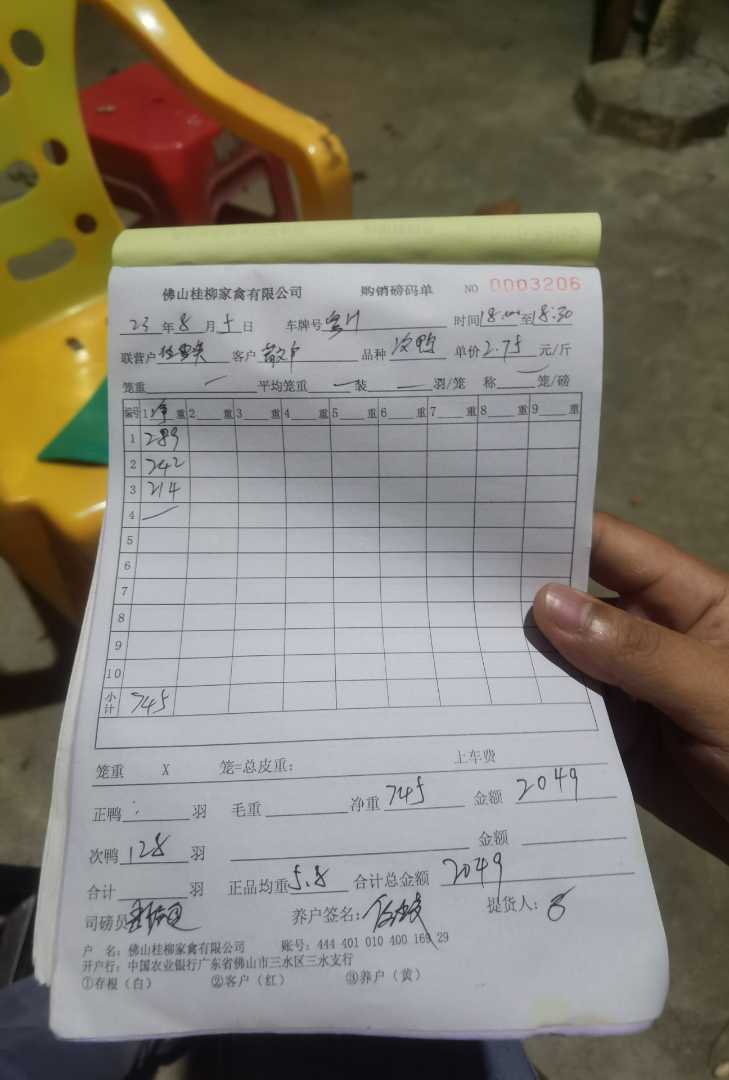 佛山桂柳家禽有限公司 购销磅码单 NO 0003206
23 年 8 月 5 日 车牌号 时间 18:00 至 18:30
联营户 客户 散户 品种 次鸭 单价 2.75 元/斤
笼重 平均笼重 装 羽/笼 称 笼/磅
编号 1 净 重 2 重 3 重 4 重 5 重 6 重 7 重 8 重 9 重
1 289
2 242
3 214
4
5
6
7
8
9
10
小计 745
笼重 X 笼=总皮重: 上车费
正鸭 羽 毛重 净重 745 金额 2049
次鸭 128 羽 金额
合计 羽 正品均重 5.8 合计总金额 2049
司磅员 养户签名: 提货人:
户 名: 佛山桂柳家禽有限公司 账号: 444 401 010 400 169 29
开户行: 中国农业银行广东省佛山市三水区三水支行
①存根（白） ②客户（红） ③养户（黄）